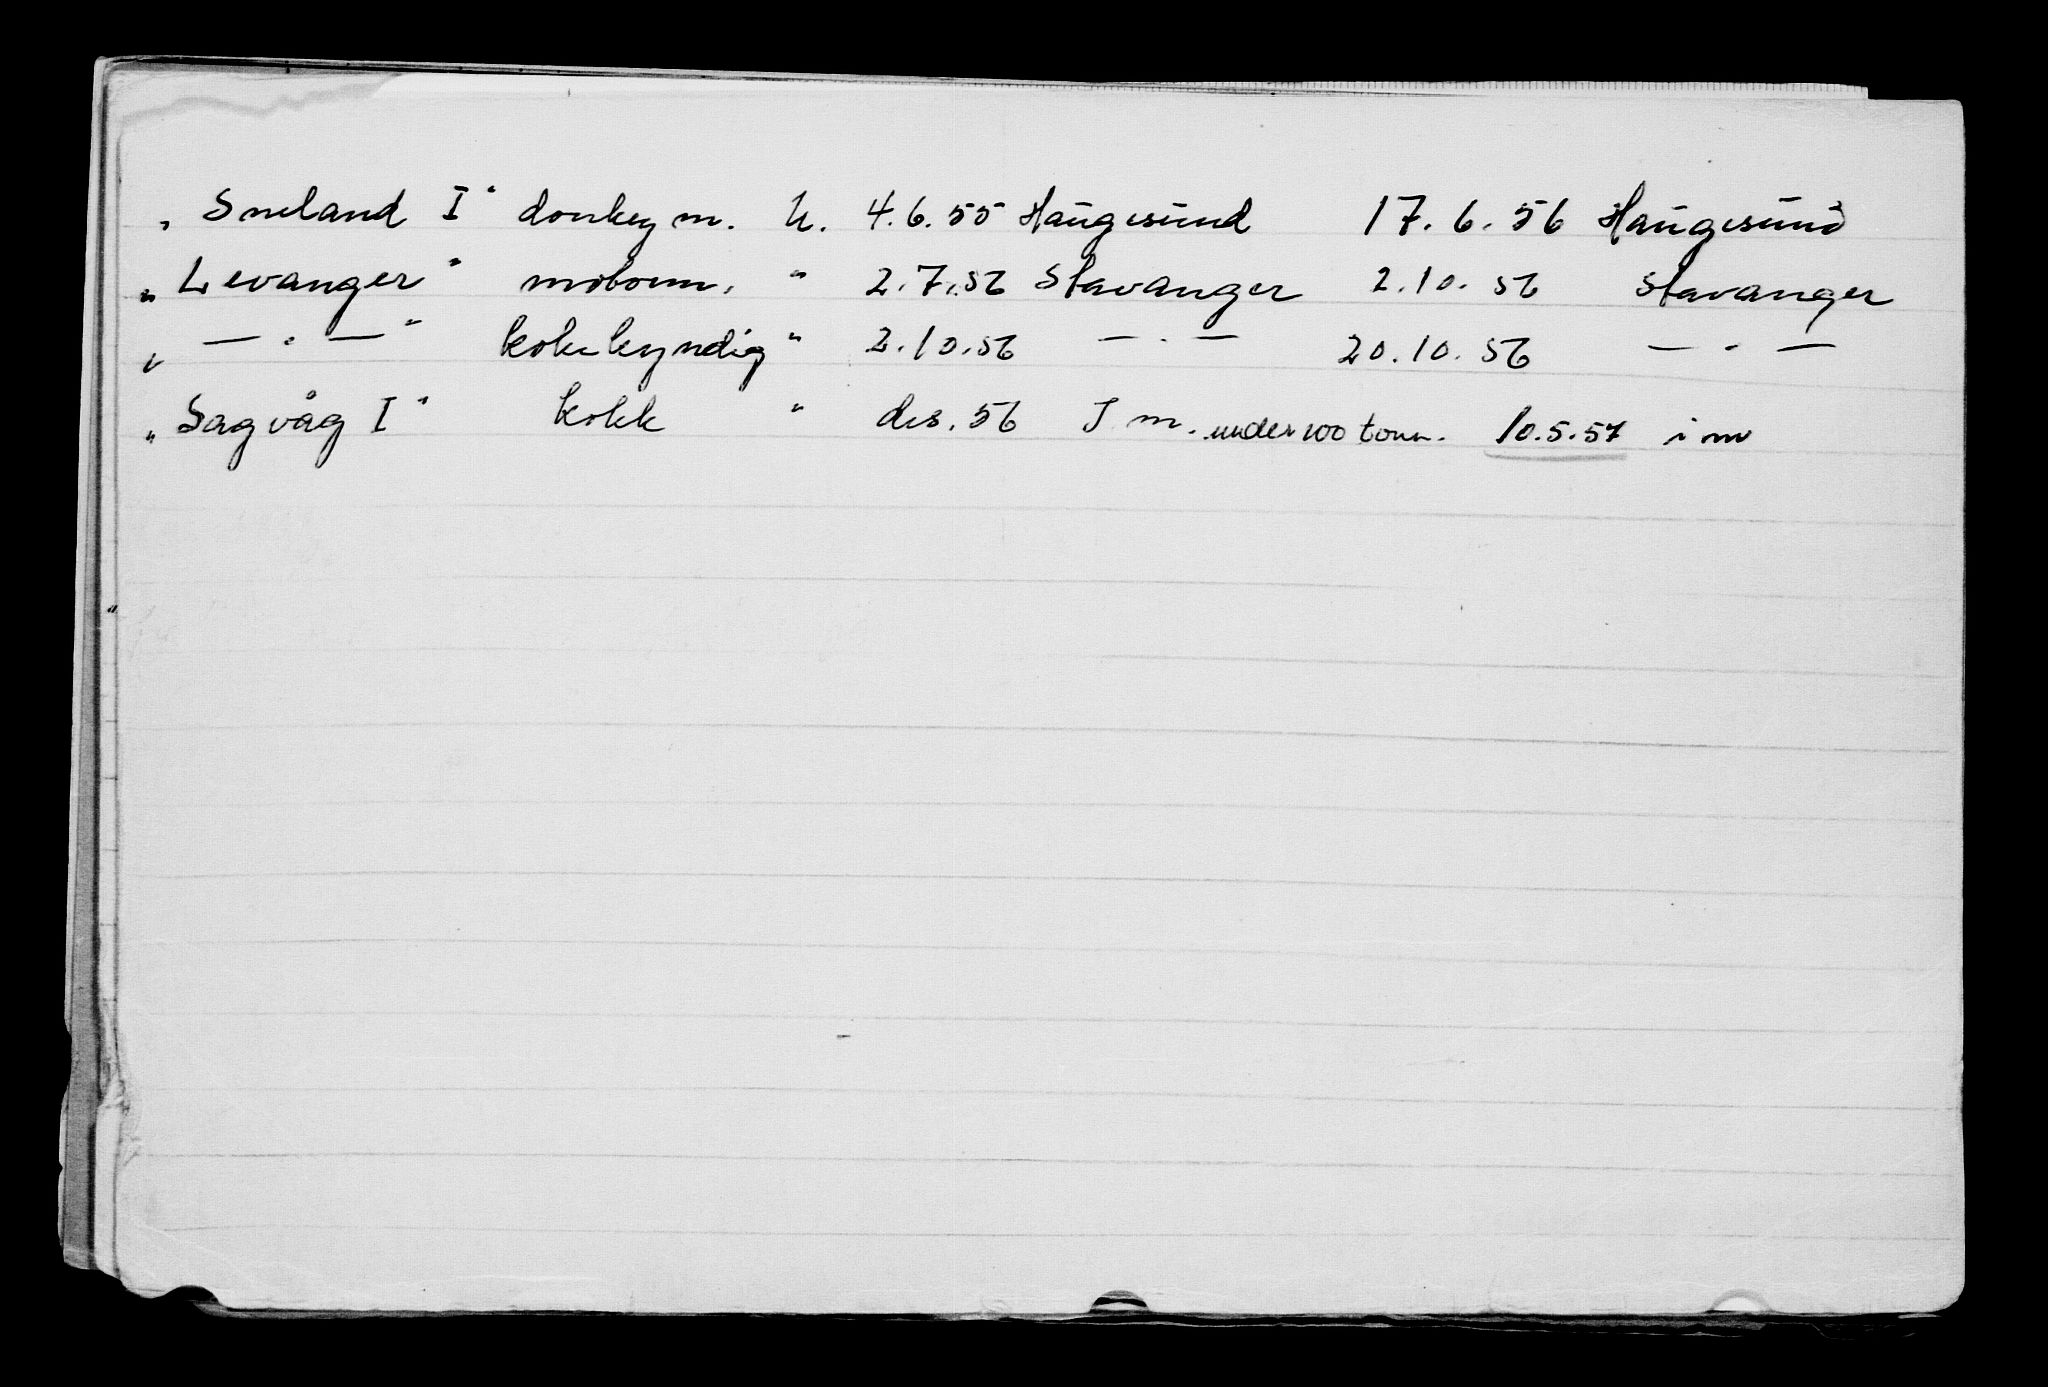 „ Sneland I" donkeym. U. 4.6.55 Haugesund 17.6.56 Haugesund
„ Levanger" motorm. " 2.7.56 Stavanger 2.10.56 Stavanger
„ — . — " kokekyndig " 2.10.56 — . — 20.10.56 — . —
„ Sagvåg I" kokk " des. 56 I m. under 100 tonn. 10.5.57 i m